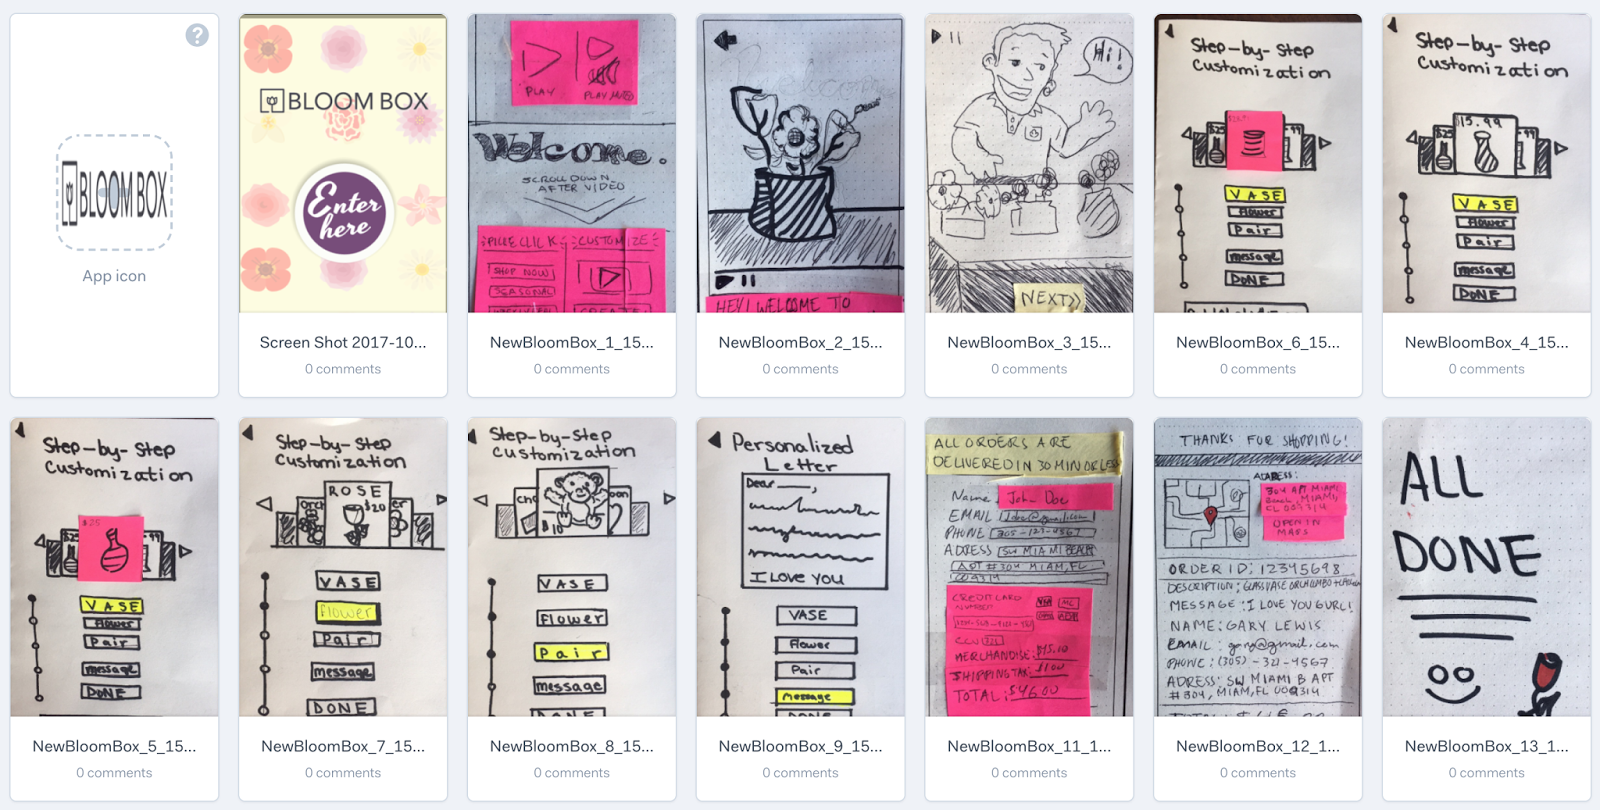 BLOOM BOX
App icon
BLOOM BOX
Enter
here
Screen Shot 2017-10...
0 comments
PLAY
Welcome.
SCROLL DOWN
AFTER VIDEO
SHOP NOW
SEASONAL
NewBloomBox_1_15...
0 comments
HEY! WELCOME TO
NewBloomBox_2_15...
0 comments
Hi!
NEXT>>
NewBloomBox_3_15...
0 comments
Step-by-Step
Customization
VASE
Flower
Pair
message
DONE
NewBloomBox_6_15...
0 comments
Step-by-Step
Customization
15.99
VASE
Flower
Pair
message
DONE
NewBloomBox_4_15...
0 comments
Step-by-Step
Customization
$25
VASE
Flower
Pair
message
DONE
NewBloomBox_5_15...
0 comments
Step-by-Step
Customization
ROSE
$20
VASE
flower
Pair
message
DONE
NewBloomBox_7_15...
0 comments
Step-by-Step
Customization
$10
VASE
Flower
Pair
message
DONE
NewBloomBox_8_15...
0 comments
Personalized
Letter
Dear
I Love you
VASE
Flower
Pair
Message
DONE
NewBloomBox_9_15...
0 comments
ALL ORDERS ARE
DELIVERED IN 30 MIN OR LESS
Name
EMAIL
PHONE 305-123-4567
ADRESS SW MIAMI BEACH
APT #304 MIAMI, FL
CREDIT CARD
NUMBER
MERCHANDISE:
SHIPPING TAX:
TOTAL: $46.00
NewBloomBox_11_1...
0 comments
THANKS FOR SHOPPING!
ADRESS:
304 APT MIAMI
OPEN IN
MAPS
ORDER ID: 12345698
DESCRIPTION:
MESSAGE: I LOVE YOU GURL!
NAME: GARY LEWIS
EMAIL: gary@gmail.com
PHONE: (305)-321-4567
ADRESS: SW MIAMI B APT
#304, MIAM, FL 009314
NewBloomBox_12_1...
0 comments
ALL
DONE
NewBloomBox_13_1...
0 comments